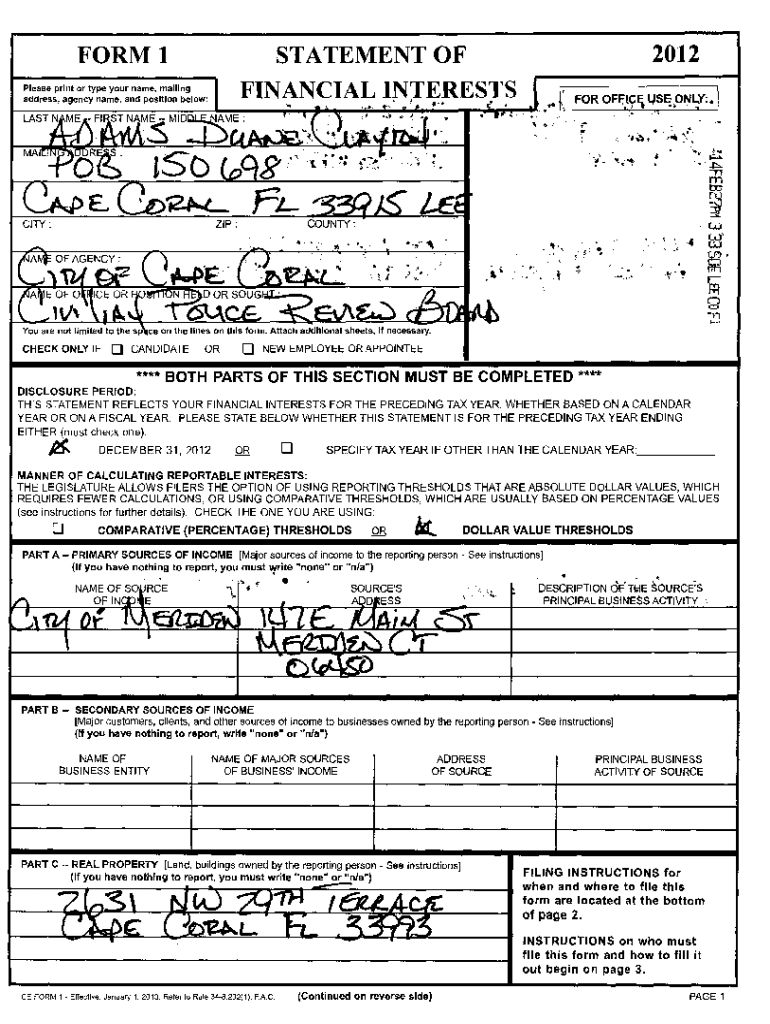 FORM 1
STATEMENT OF
FINANCIAL INTERESTS
2012
Please print or type your name, mailing
address, agency name, and position below:
FOR OFFICE USE ONLY:
LAST NAME -- FIRST NAME -- MIDDLE NAME :
ADAMS DUANE CLAYTON
MAILING ADDRESS :
POB 150698
CAPE CORAL FL 33915 LEE
CITY : ZIP : COUNTY :
NAME OF AGENCY :
CITY OF CAPE CORAL
NAME OF OFFICE OR POSITION HELD OR SOUGHT :
CIVILIAN POLICE REVIEW BOARD
You are not limited to the space on the lines on this form. Attach additional sheets, if necessary.
CHECK ONLY IF ☐ CANDIDATE OR ☐ NEW EMPLOYEE OR APPOINTEE
**** BOTH PARTS OF THIS SECTION MUST BE COMPLETED ****
DISCLOSURE PERIOD:
THIS STATEMENT REFLECTS YOUR FINANCIAL INTERESTS FOR THE PRECEDING TAX YEAR, WHETHER BASED ON A CALENDAR
YEAR OR ON A FISCAL YEAR. PLEASE STATE BELOW WHETHER THIS STATEMENT IS FOR THE PRECEDING TAX YEAR ENDING
EITHER (must check one):
☒ DECEMBER 31, 2012 OR ☐ SPECIFY TAX YEAR IF OTHER THAN THE CALENDAR YEAR:
MANNER OF CALCULATING REPORTABLE INTERESTS:
THE LEGISLATURE ALLOWS FILERS THE OPTION OF USING REPORTING THRESHOLDS THAT ARE ABSOLUTE DOLLAR VALUES, WHICH
REQUIRES FEWER CALCULATIONS, OR USING COMPARATIVE THRESHOLDS, WHICH ARE USUALLY BASED ON PERCENTAGE VALUES
(see instructions for further details). CHECK THE ONE YOU ARE USING:
☐ COMPARATIVE (PERCENTAGE) THRESHOLDS OR ☒ DOLLAR VALUE THRESHOLDS
PART A -- PRIMARY SOURCES OF INCOME [Major sources of income to the reporting person - See instructions]
(If you have nothing to report, you must write "none" or "n/a")
NAME OF SOURCE
OF INCOME
SOURCE'S
ADDRESS
DESCRIPTION OF THE SOURCE'S
PRINCIPAL BUSINESS ACTIVITY
CITY OF MERIDEN 142 E MAIN ST
MERIDEN CT
06450
PART B -- SECONDARY SOURCES OF INCOME
[Major customers, clients, and other sources of income to businesses owned by the reporting person - See instructions]
(If you have nothing to report, write "none" or "n/a")
NAME OF
BUSINESS ENTITY
NAME OF MAJOR SOURCES
OF BUSINESS' INCOME
ADDRESS
OF SOURCE
PRINCIPAL BUSINESS
ACTIVITY OF SOURCE
PART C -- REAL PROPERTY [Land, buildings owned by the reporting person - See instructions]
(If you have nothing to report, you must write "none" or "n/a")
2631 NW 29TH TERRACE
CAPE CORAL FL 33993
FILING INSTRUCTIONS for
when and where to file this
form are located at the bottom
of page 2.
INSTRUCTIONS on who must
file this form and how to fill it
out begin on page 3.
CE FORM 1 - Effective: January 1, 2013. Refer to Rule 34-8.202(1), F.A.C.
(Continued on reverse side)
PAGE 1